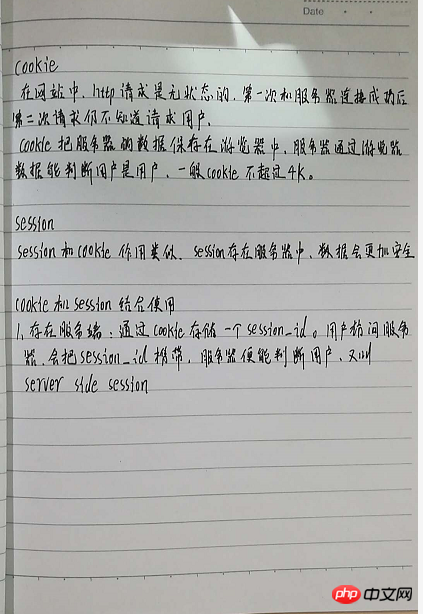 Date
cookie
在网站中，http请求是无状态的，第一次和服务器连接成功后
第二次请求仍不知道请求用户.
cookie把服务器的数据保存在游览器中，服务器通过游览器
数据能判断用户是用户、一般cookie不超过4K。
session
session和cookie作用类似、session存在服务器中、数据会更加安全
cookie和session结合使用
1、存在服务端：通过cookie存储一个session_id。用户访问服务
器.会把session_id携带，服务器便能判断用户、又叫
server side session
php中文网